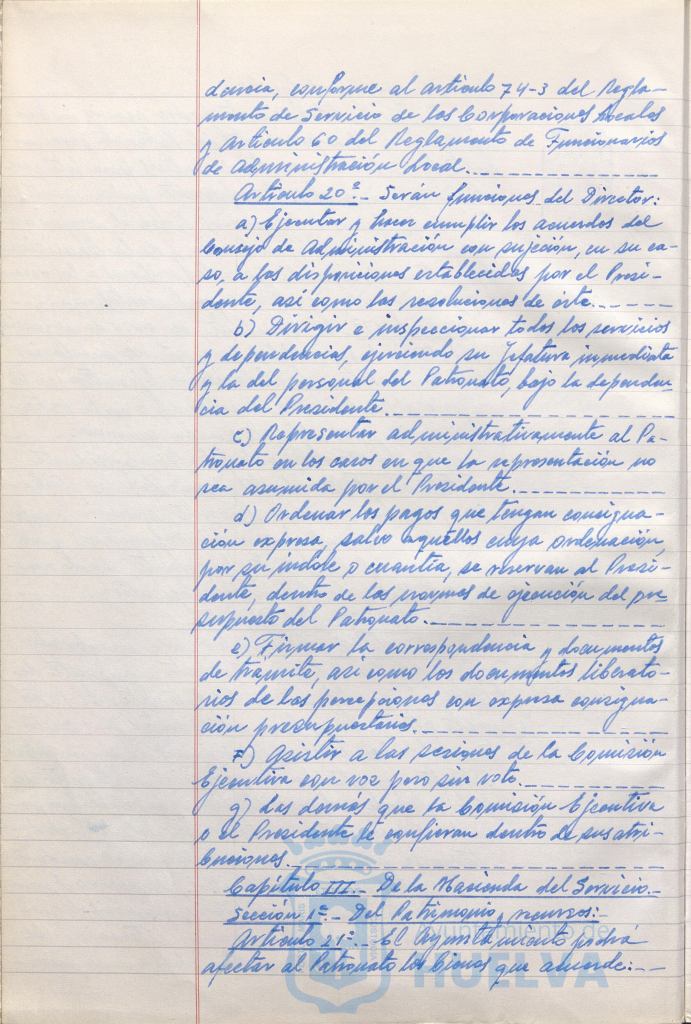 dencia, conforme al artículo 74-3 del Regla-
mento de Servicio de las Corporaciones Locales
y artículo 60 del Reglamento de Funcionarios
de Administración Local.
Artículo 20º.- Serán funciones del Director:
a) Ejecutar y hacer cumplir los acuerdos del
Consejo de Administración con sujeción, en su ca-
so, a las disposiciones establecidas por el Presi-
dente, así como las resoluciones de éste.
b) Dirigir e inspeccionar todos los servicios
y dependencias, ejerciendo su Jefatura inmediata
y la del personal del Patronato, bajo la dependen-
cia del Presidente.
c) Representar administrativamente al Pa-
tronato en los casos en que la representación no
sea asumida por el Presidente.
d) Ordenar los pagos que tengan consigna-
ción expresa, salvo aquellos cuya ordenación,
por su índole o cuantía, se reservan al Presi-
dente, dentro de las normas de ejecución del pre-
supuesto del Patronato.
e) Firmar la correspondencia y documentos
de trámite, así como los documentos liberato-
rios de las percepciones con expresa consigna-
ción presupuestarias.
f) Asistir a las sesiones de la Comisión
Ejecutiva con voz pero sin voto.
g) Las demás que la Comisión Ejecutiva
o el Presidente le confieran dentro de sus atri-
buciones.
Capítulo III.- De la Hacienda del Servicio.-
Sección 1ª.- Del Patrimonio y recursos:-
Artículo 21º.- El Ayuntamiento podrá
afectar al Patronato los bienes que acuerde:--
Ayuntamiento de
HUELVA